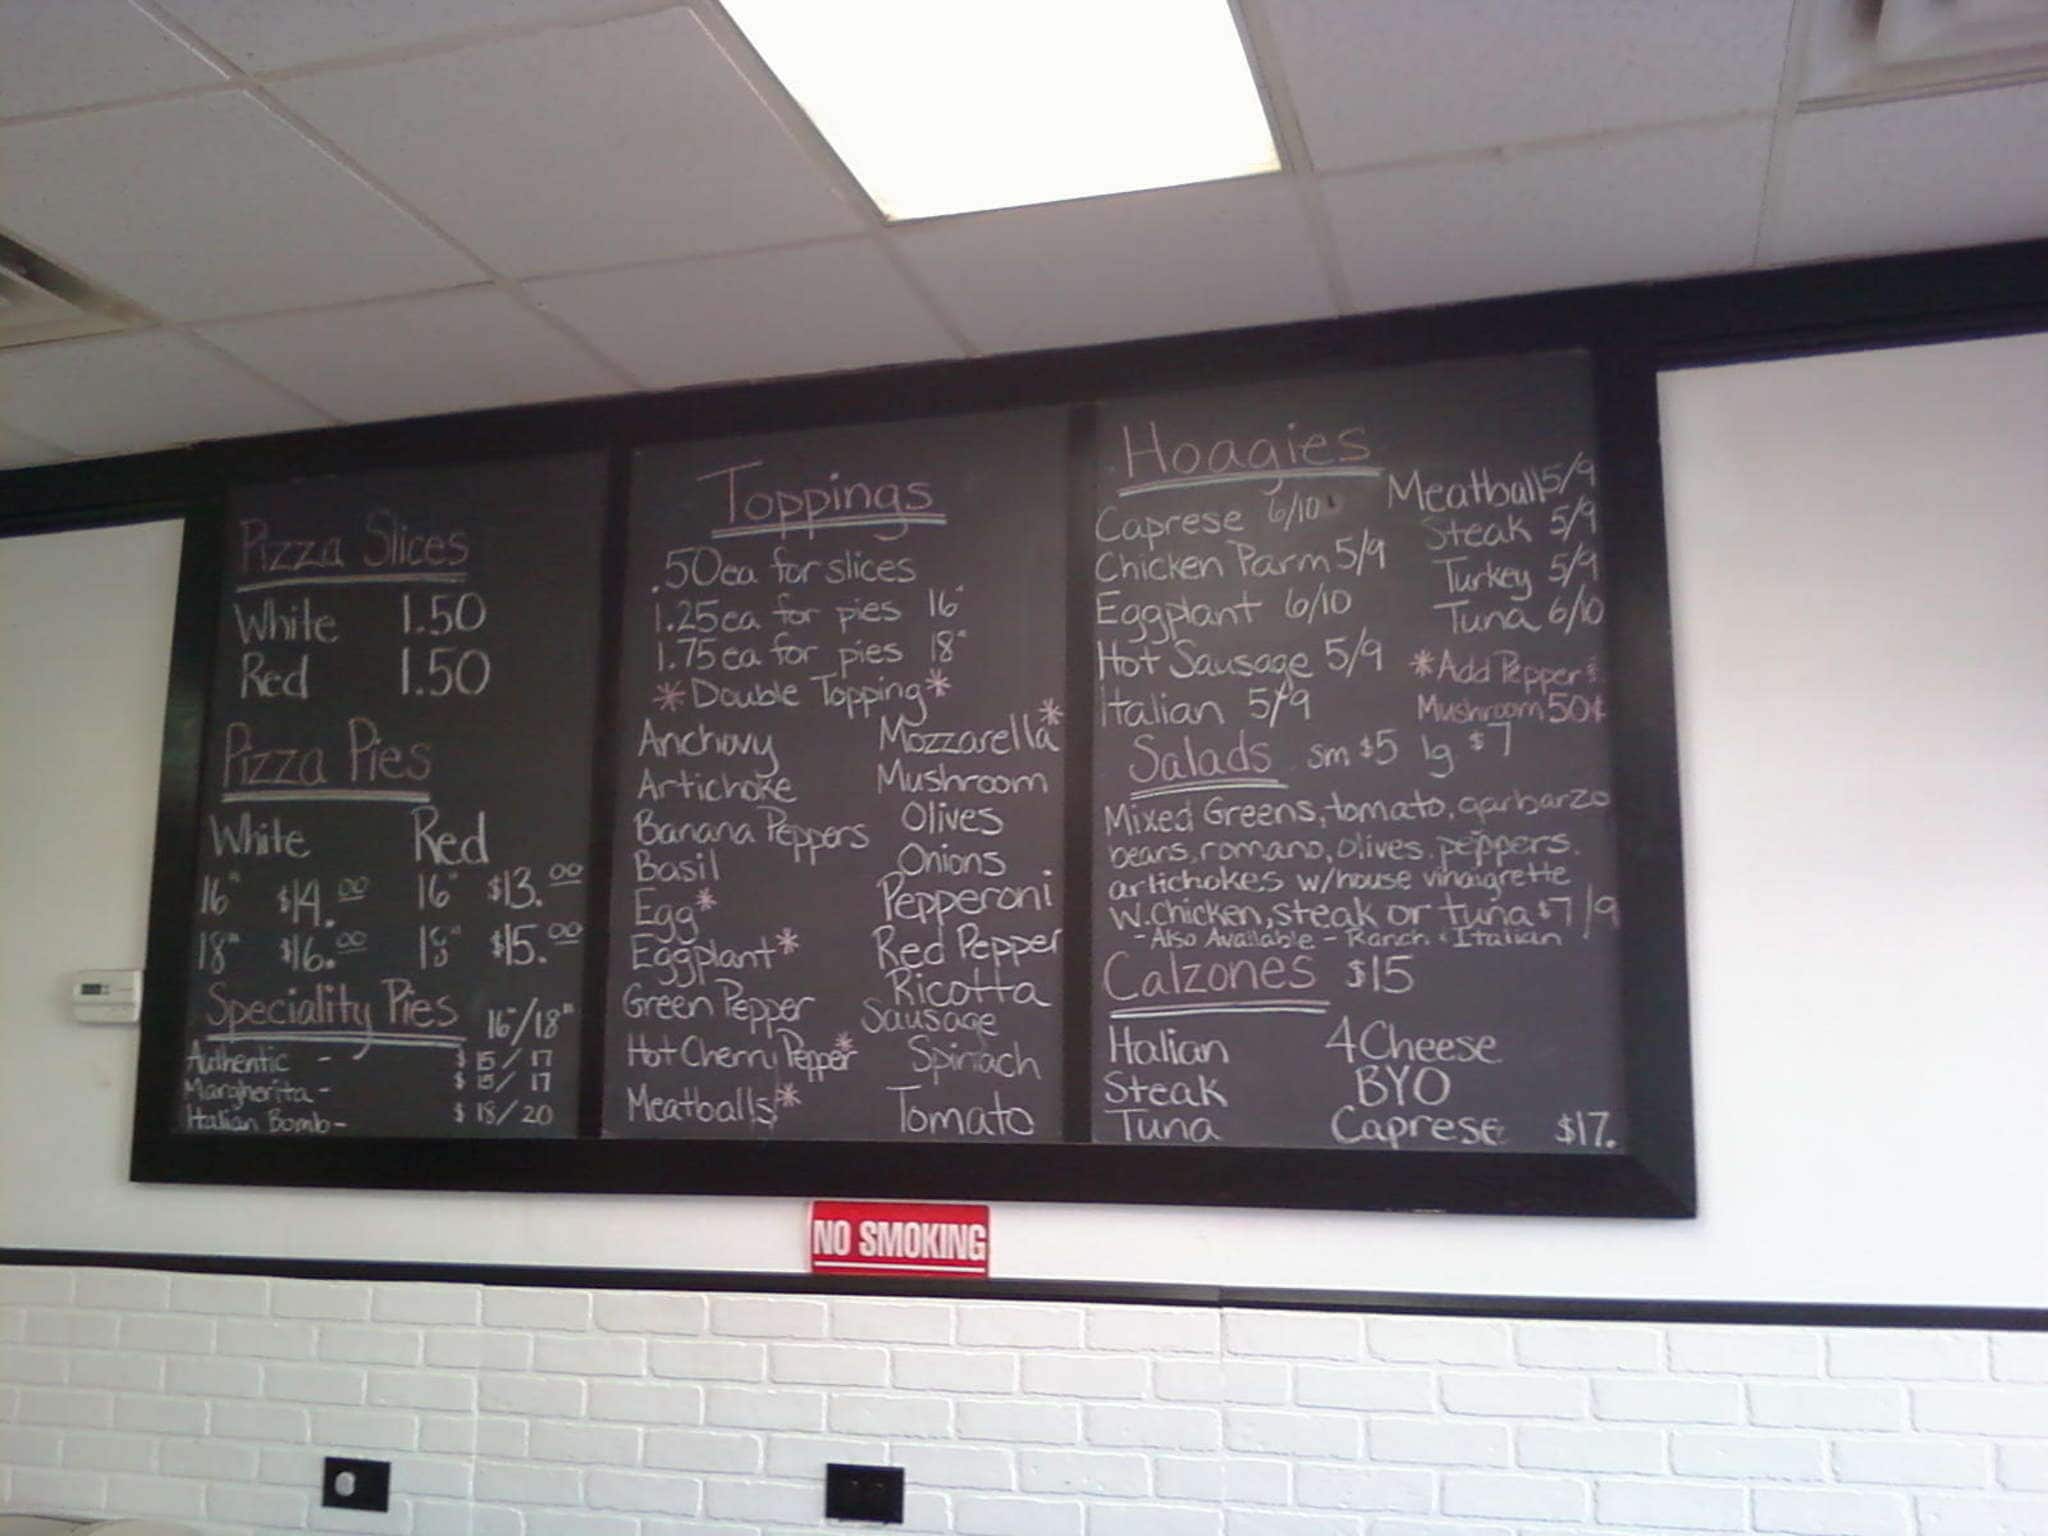 Pizza Slices
White 1.50
Red 1.50
Pizza Pies
White Red
16" $14.00 16" $13.00
18" $16.00 18" $15.00
Speciality Pies 16"/18"
Authentic - $ 15/17
Margherita - $ 15/17
Italian Bomb - $ 18/20
Toppings
.50ea for slices
1.25ea for pies 16"
1.75ea for pies 18"
*Double Topping*
Anchovy Mozzarella*
Artichoke Mushroom
Banana Peppers Olives
Basil Onions
Egg* Pepperoni
Eggplant* Red Pepper
Green Pepper Ricotta
Sausage
Hot Cherry Pepper* Spinach
Meatballs* Tomato
Hoagies
Caprese 6/10 Meatball 5/9
Chicken Parm 5/9 Steak 5/9
Eggplant 6/10 Turkey 5/9
Hot Sausage 5/9 Tuna 6/10
Italian 5/9 *Add Pepper &
Mushroom 50¢
Salads sm $5 lg $7
Mixed Greens, tomato, garbarzo
beans, romano, olives, peppers,
artichokes w/house vinaigrette
W. Chicken, steak or tuna $7/9
- Also Available - Ranch & Italian
Calzones $15
Italian 4 Cheese
Steak BYO
Tuna Caprese $17.
NO SMOKING